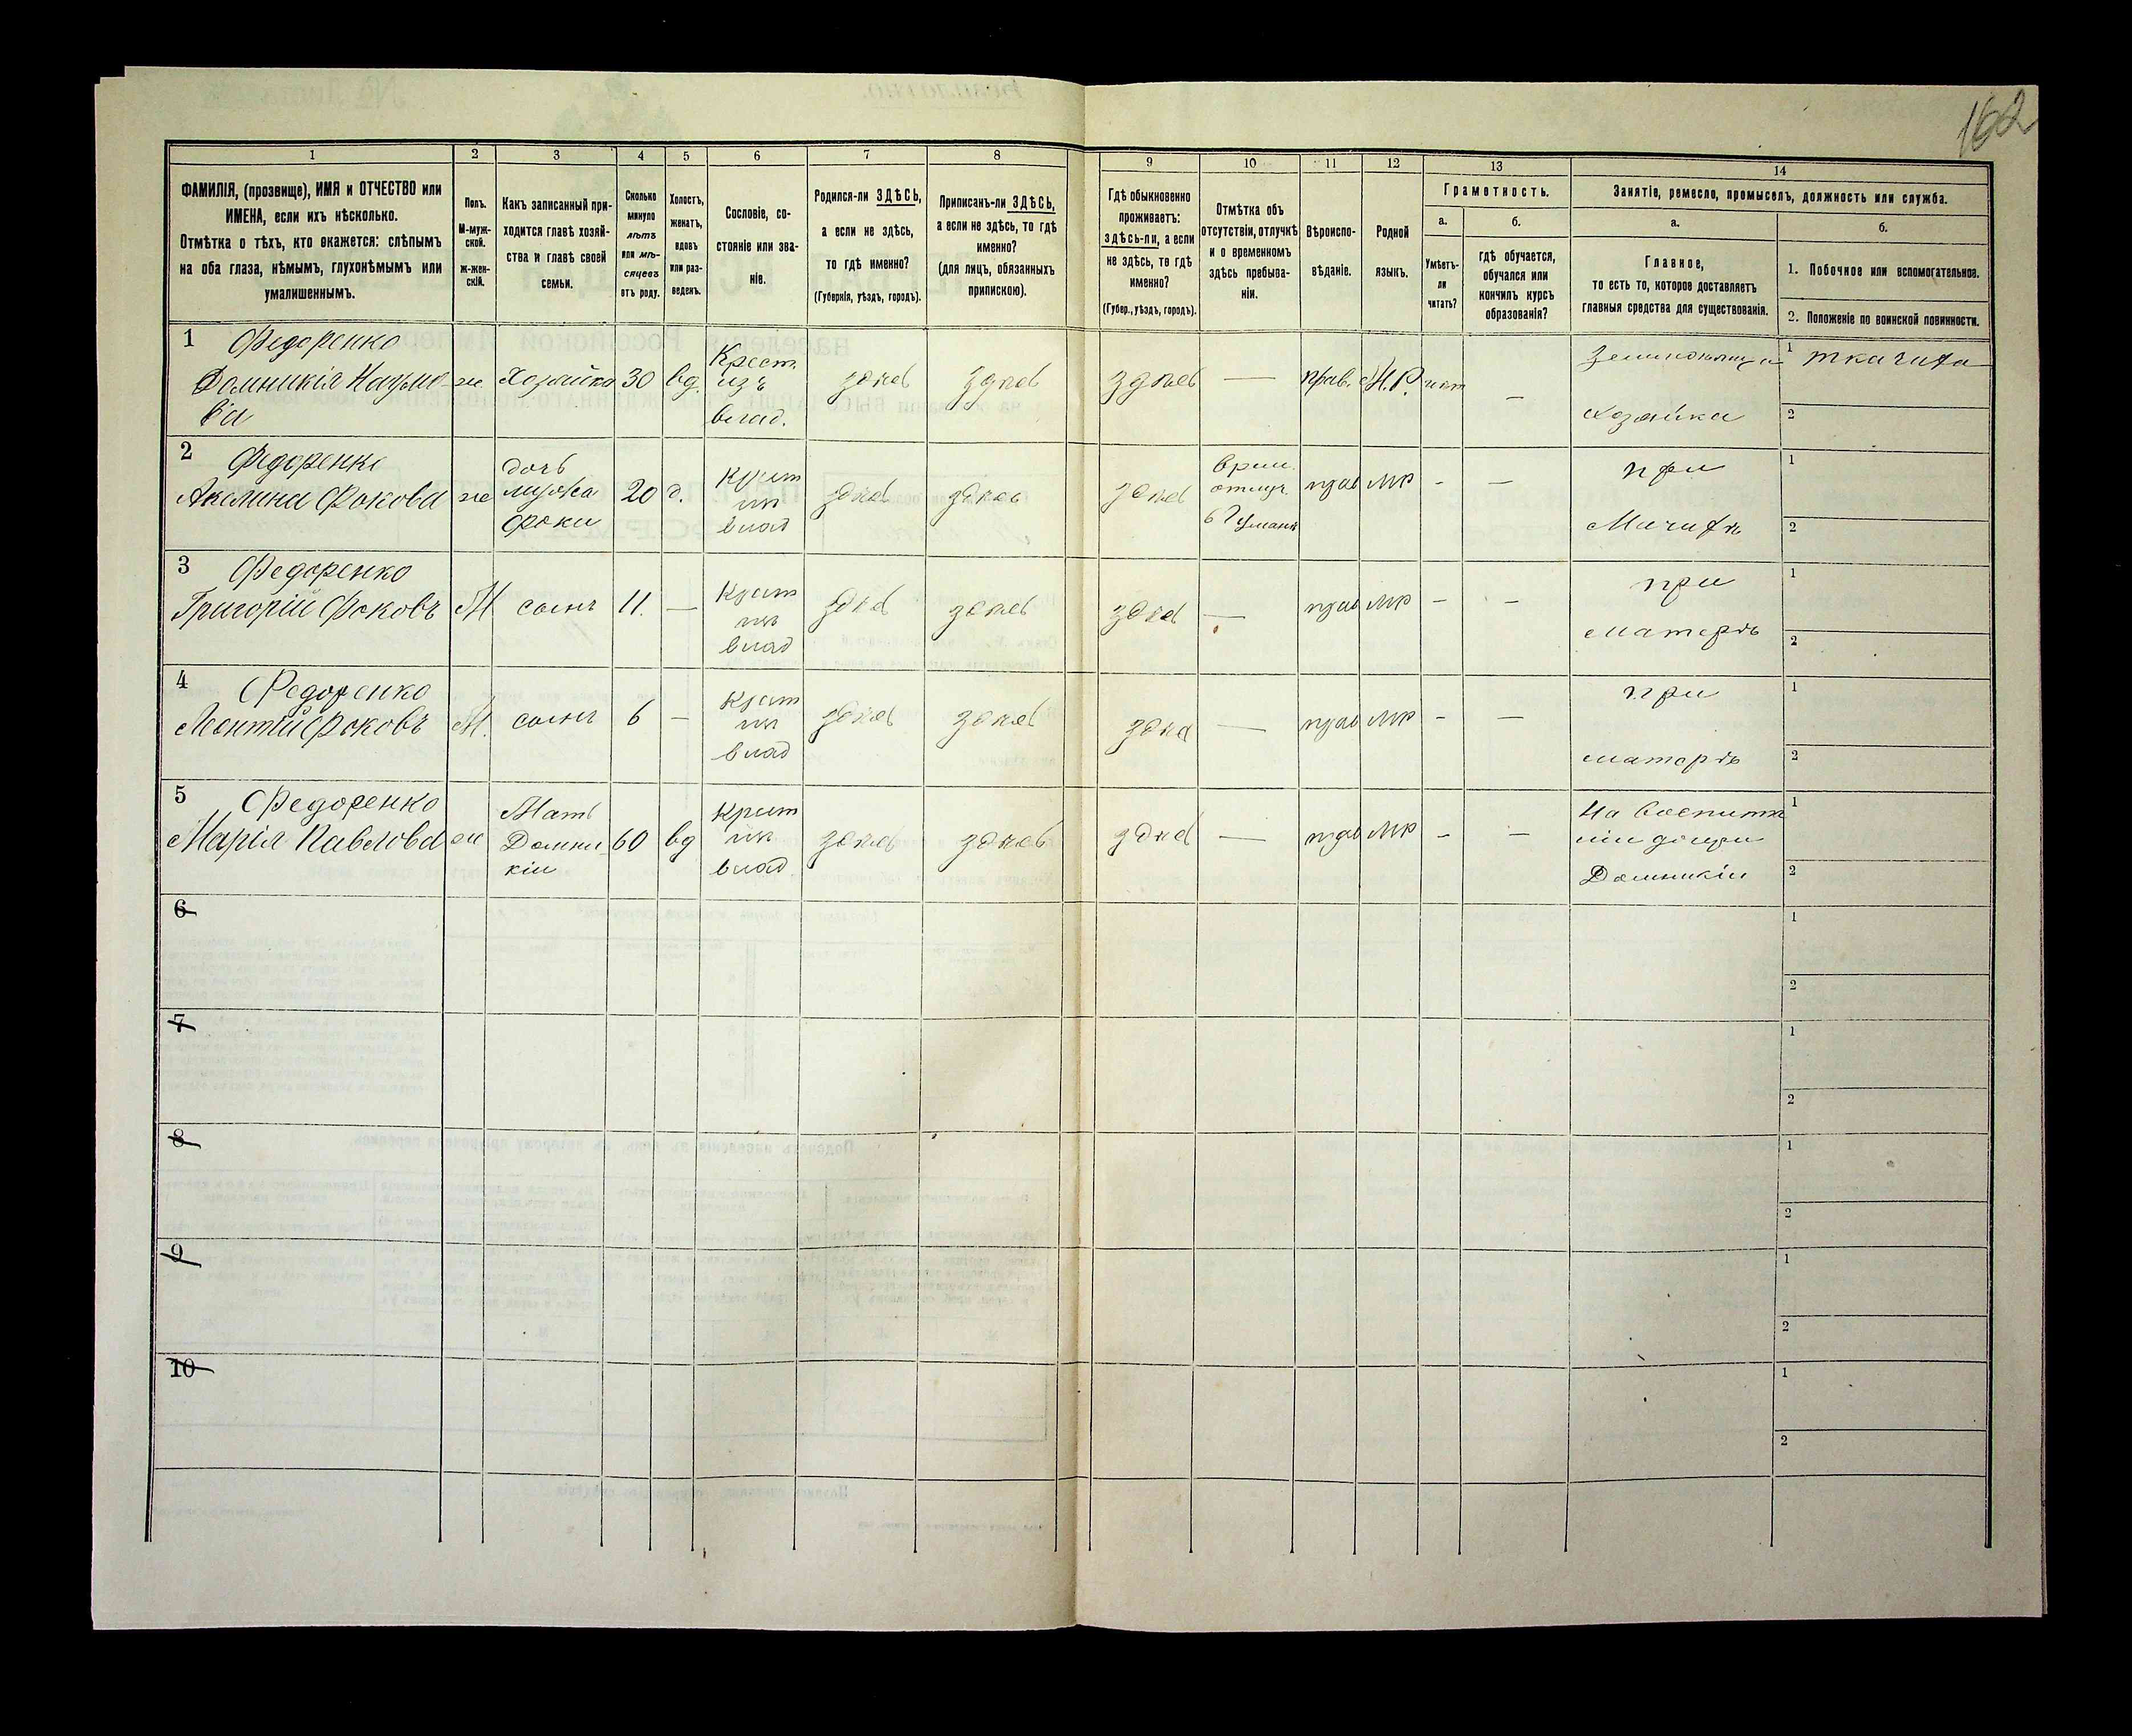 162
1 2 3 4 5 6 7 8 9 10 11 12 13 14
ФАМИЛІЯ, (прозвище), ИМЯ и ОТЧЕСТВО или
ИМЕНА, если ихъ нѣсколько.
Отмѣтка о тѣхъ, кто окажется: слѣпымъ
на оба глаза, нѣмымъ, глухонѣмымъ или
умалишеннымъ.
Полъ.
М-муж-
ской.
ж-жен-
скій.
Какъ записанный при-
ходится главѣ хозяй-
ства и главѣ своей
семьи.
Сколько
минуло
лѣтъ
или мѣ-
сяцевъ
отъ роду.
Холостъ,
женатъ,
вдовъ
или раз-
веденъ.
Сословіе, со-
стояніе или зва-
ніе.
Родился-ли ЗДѢСЬ,
а если не здѣсь,
то гдѣ именно?
(Губернія, уѣздъ, городъ).
Приписанъ-ли ЗДѢСЬ,
а если не здѣсь, то гдѣ
именно?
(для лицъ, обязанныхъ
припискою).
Гдѣ обыкновенно
проживаетъ:
здѣсь-ли, а если
не здѣсь, то гдѣ
именно?
(Губер., уѣздъ, городъ).
Отмѣтка объ
отсутствіи, отлучкѣ
и о временномъ
здѣсь пребыва-
ніи.
Вѣроиспо-
вѣданіе.
Родной
языкъ.
Грамотность.
а.
Умѣетъ-
ли
читать?
б.
гдѣ обучается,
обучался или
кончилъ курсъ
образованія?
Занятіе, ремесло, промыселъ, должность или служба.
а.
Главное,
то есть то, которое доставляетъ
главныя средства для существованія.
б.
1. Побочное или вспомогательное.
2. Положеніе по воинской повинности.
1 Федоренко
Домникія Назью-
ва
ж
Хозяйка
30
вд.
Крест.
изъ
влад.
здѣсь
здѣсь
здѣсь
—
прав.
М.Р.
нѣт
—
хозяйка
1 ткачиха
2
2 Федоренко
Акелина Фокова
ж
дочь
мужа
Фоки
20
д.
Крест
изъ
влад
здѣсь
здѣсь
здѣсь
врем.
отлуч.
в Г. Умани
прав
мр
-
—
при
Мачихѣ
1
2
3 Федоренко
Григорій Фоковъ
М
сынъ
11.
—
Крест
изъ
влад
здѣсь
здѣсь
здѣсь
—
прав
мр
-
—
при
матерѣ
1
2
4 Федоренко
Леонтій Фоковъ
М.
сынъ
6
—
Крест
изъ
влад
здѣсь
здѣсь
здѣсь
—
прав
мр
-
—
при
матерѣ
1
2
5 Федоренко
Марія Павлова
ж
Мать
Домни-
кіи
60
вд
Крест
изъ
влад
здѣсь
здѣсь
здѣсь
—
прав
мр
-
—
На воспита
ніи дочери
Домникіи
1
2
6
1
2
7
1
2
8
1
2
9
1
2
10
1
2